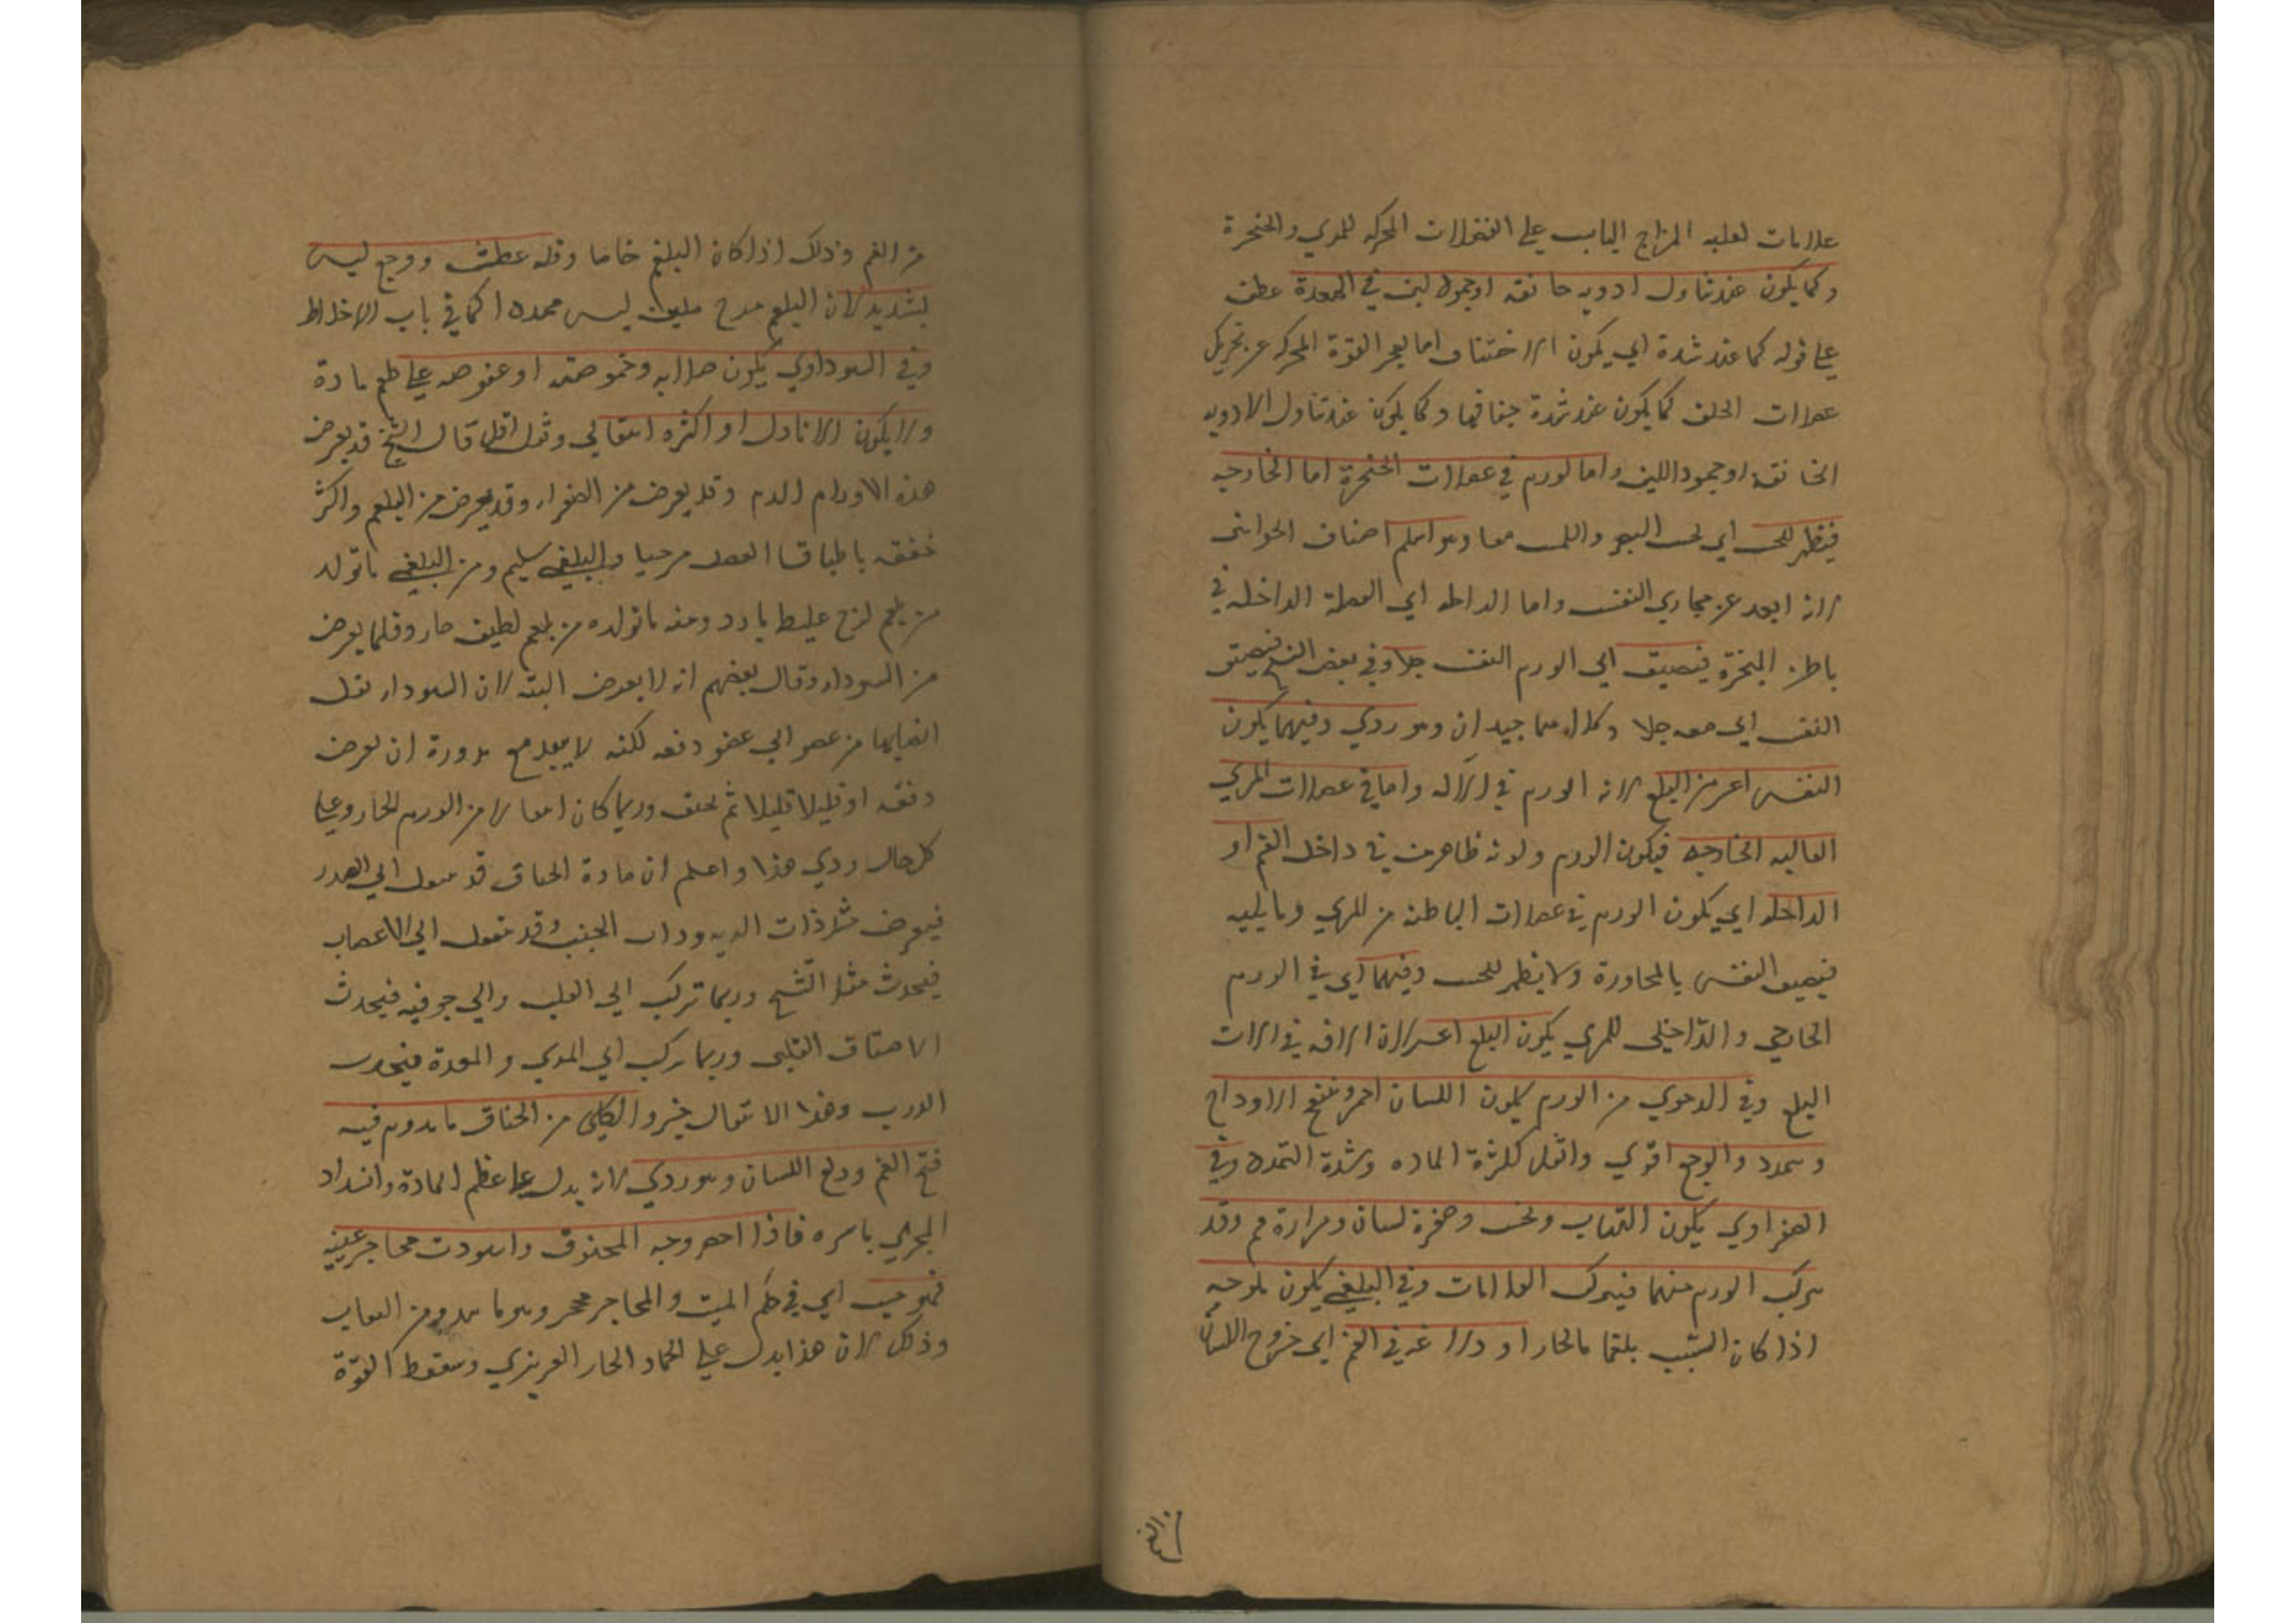 علامات لغلبه المزاج اليابس علي العضلات المحركه للمري والحنجرة
وكما يكون عند تناول ادويه خانقه اوجمود لبن في المعدة عطف
علي قوله كما عند شدة اي يكون الاختناق اما لعجز القوة المحركه عن تحريك
عضلات الحلق كما يكون عند شدة جفافها وكما يكون عند تناول الادويه
الخانقة اوجمود اللبن واما لورم في عضلات الحنجرة اما الخارجيه
فيظهر للحس اي لحس البصر واللمس معا وهو اسلم اصناف الخوانق
لانه ابعد عن مجاري النفس واما الداخله اي العضلة الداخلة في
باطن الحنجرة فيضيق اي الورم النفس جدا وفي بعض النسخ فيضيق
النفس اي معه جدا وكلاهما جيدان وهو ردي وفيهما يكون
النفس اعسر من البلع لانه الورم في الاله واما في عضلات المري
العاليه الخارجيه فيكون الورم ولونه ظاهرين في داخل الفم او
الداخله اي يكون الورم في عضلات الباطنه من المري ومايليه
فيضيق النفس بالمجاورة ولايظهر للحس وفيهما اي في الورم
الخارجي والداخلي للمري يكون البلع اعسر لان الافه في الات
البلع وفي الدموي من الورم يكون اللسان احمر وتنتفخ الاوداج
وتمدد والوجع اقوي واثقل لكثرة الماده وشدة التمدد وفي
الصفراوي يكون التهاب ونخس وصفرة لسان ومرارة فم وقد
يتركب الورم منهما فيتركب العلامات وفي البلغمي يكون ملوحيه
اذا كان السبب بلغما مالحا او دلاعه في الفم اي خروج اللسان
من الفم
من الفم وذلك اذا كان البلغم خاما وقله عطش ووجع ليس
بشديد لان البلغم ملين ليس ممددا كما في باب الاخلاط
وفي السوداوي يكون صلابه وحموضته او عفوصه علي طعم مادة
ولا يكون الا نادرا او اكثره انتقالي وقال الشيخ قد يعرض
هذه الاورام الدم وقد يعرض من الصفراء وقد يعرض من البلغم واكثر
خنقه باطباق العضل مرخيا والبلغمي سليم ومن البلغمي ماتولد
من بلغم لزج غليظ بارد ومنه ماتولده من بلغم لطيف حار وقلما يعرض
من السوداء وقال بعضهم انه لا يعرض البته لان السوداء تقل
انصبابها من عضو الي عضو دفعه لكنه لايبعد مع ندورة ان تعرض
دفعه او قليلا قليلا ثم تخنق وربما كان انتقالا من الورم الحار وعلي
كل حال ردي هذا واعلم ان مادة الخناق قد تتحول الي الصدر
فيعرض مثل ذات الريه وذات الجنب وقد تتحول الي الاعصاب
فيحدث مثل التشنج وربما تركب الي القلب والي جوفيه فيحدث
الاختناق القلبي وربما تركب الي المري والمعدة فيحدث
الدرب وهذا الانتقال خير والكلبي من الخناق مايدوم فيه
فتح الفم ودلع اللسان وهو ردي لانه يدل علي عظم المادة وانسداد
المجري باسره فاذا احمر وجه المخنوق واسودت محاجر عينيه
فهو ميت اي في حكم الميت والمحاجر محجر وهو ما يبدو من النقاب
وذلك لان هذا يدل علي اخماد الحار الغريزي وسقوط القوة